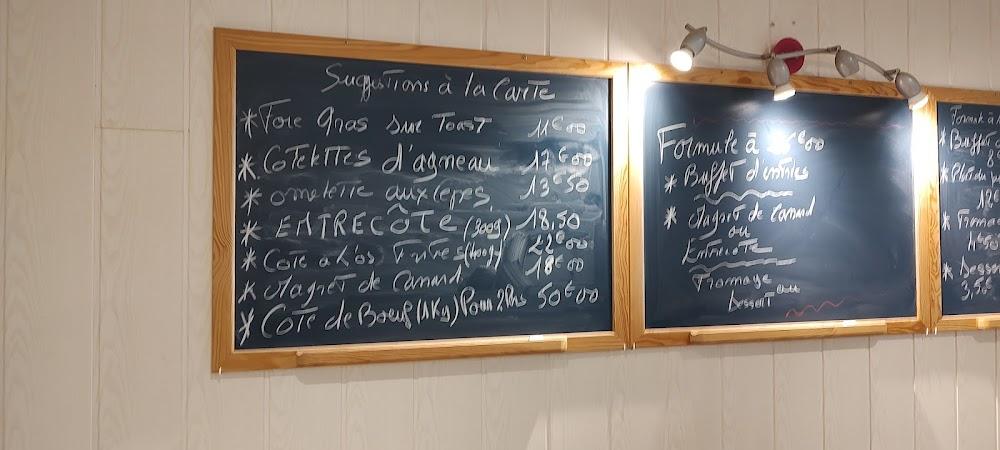 Suggestions à la Carte
* Foie Gras sur Toast 11€00
* Cotelettes d'agneau 17€00
* omelette aux cepes 13€50
* ENTRECÔTE (300g) 18,50
* Cote a l'os Frites (400g) 22€00
* Magret de Canard 18€00
* Cote de Boeuf (1Kg) Pour 2 Prs 50€00
Formule à €00
* Buffet d'entrées
* Magret de Canard
ou
Entrecôte
Fromage
ou
Dessert
Formule à
* Buffet
* Plat du
12€
* Fromage
4€50
* Dessert
3,5€